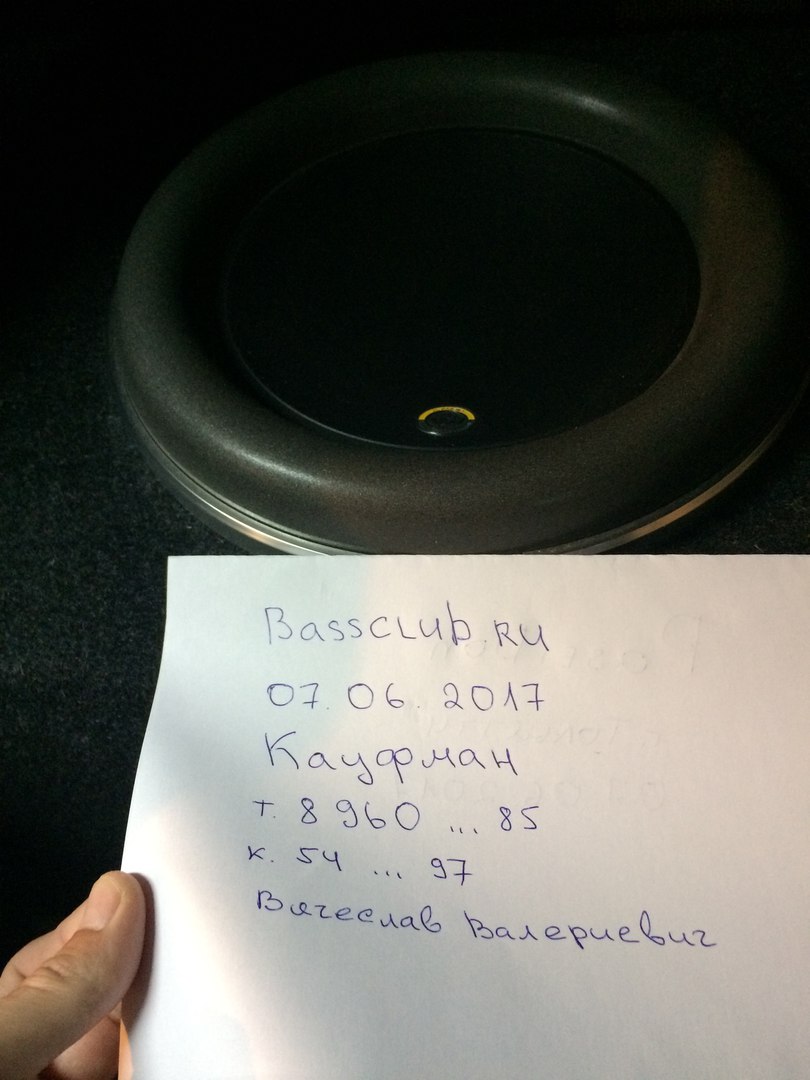 Bassclub.ru
07.06.2017
Кауфман
т. 8 960 ... 85
к. 54 ... 97
Вячеслав Валериевич